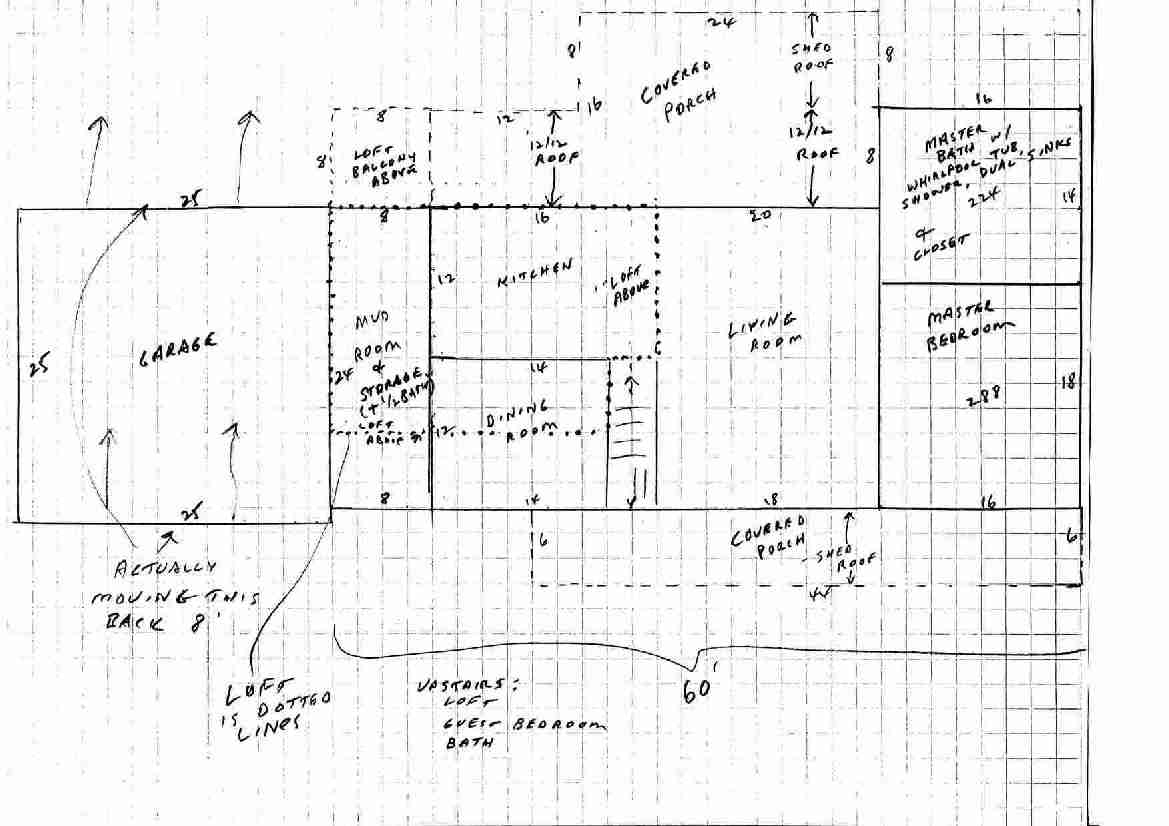 24
8'
SHED
ROOF
8
COVERED
PORCH
16
8
12
16
12/12
ROOF
12/12
ROOF
8'
LOFT
BALCONY
ABOVE
8
MASTER
BATH W/
WHIRLPOOL TUB,
SHOWER, DUAL SINKS
224
14
&
CLOSET
25
8
16
20
12
KITCHEN
LOFT
ABOVE
LIVING
ROOM
MASTER
BEDROOM
288
18
GARAGE
25
MUD
ROOM
&
STORAGE
(+ 1/2 BATH)
24
LOFT
ABOVE
14
12
DINING
ROOM
25
8
14
18
16
6
COVERED
PORCH
SHED
ROOF
6
44
ACTUALLY
MOVING THIS
BACK 8'
60'
LOFT
IS DOTTED
LINES
UPSTAIRS:
LOFT
GUEST BEDROOM
BATH